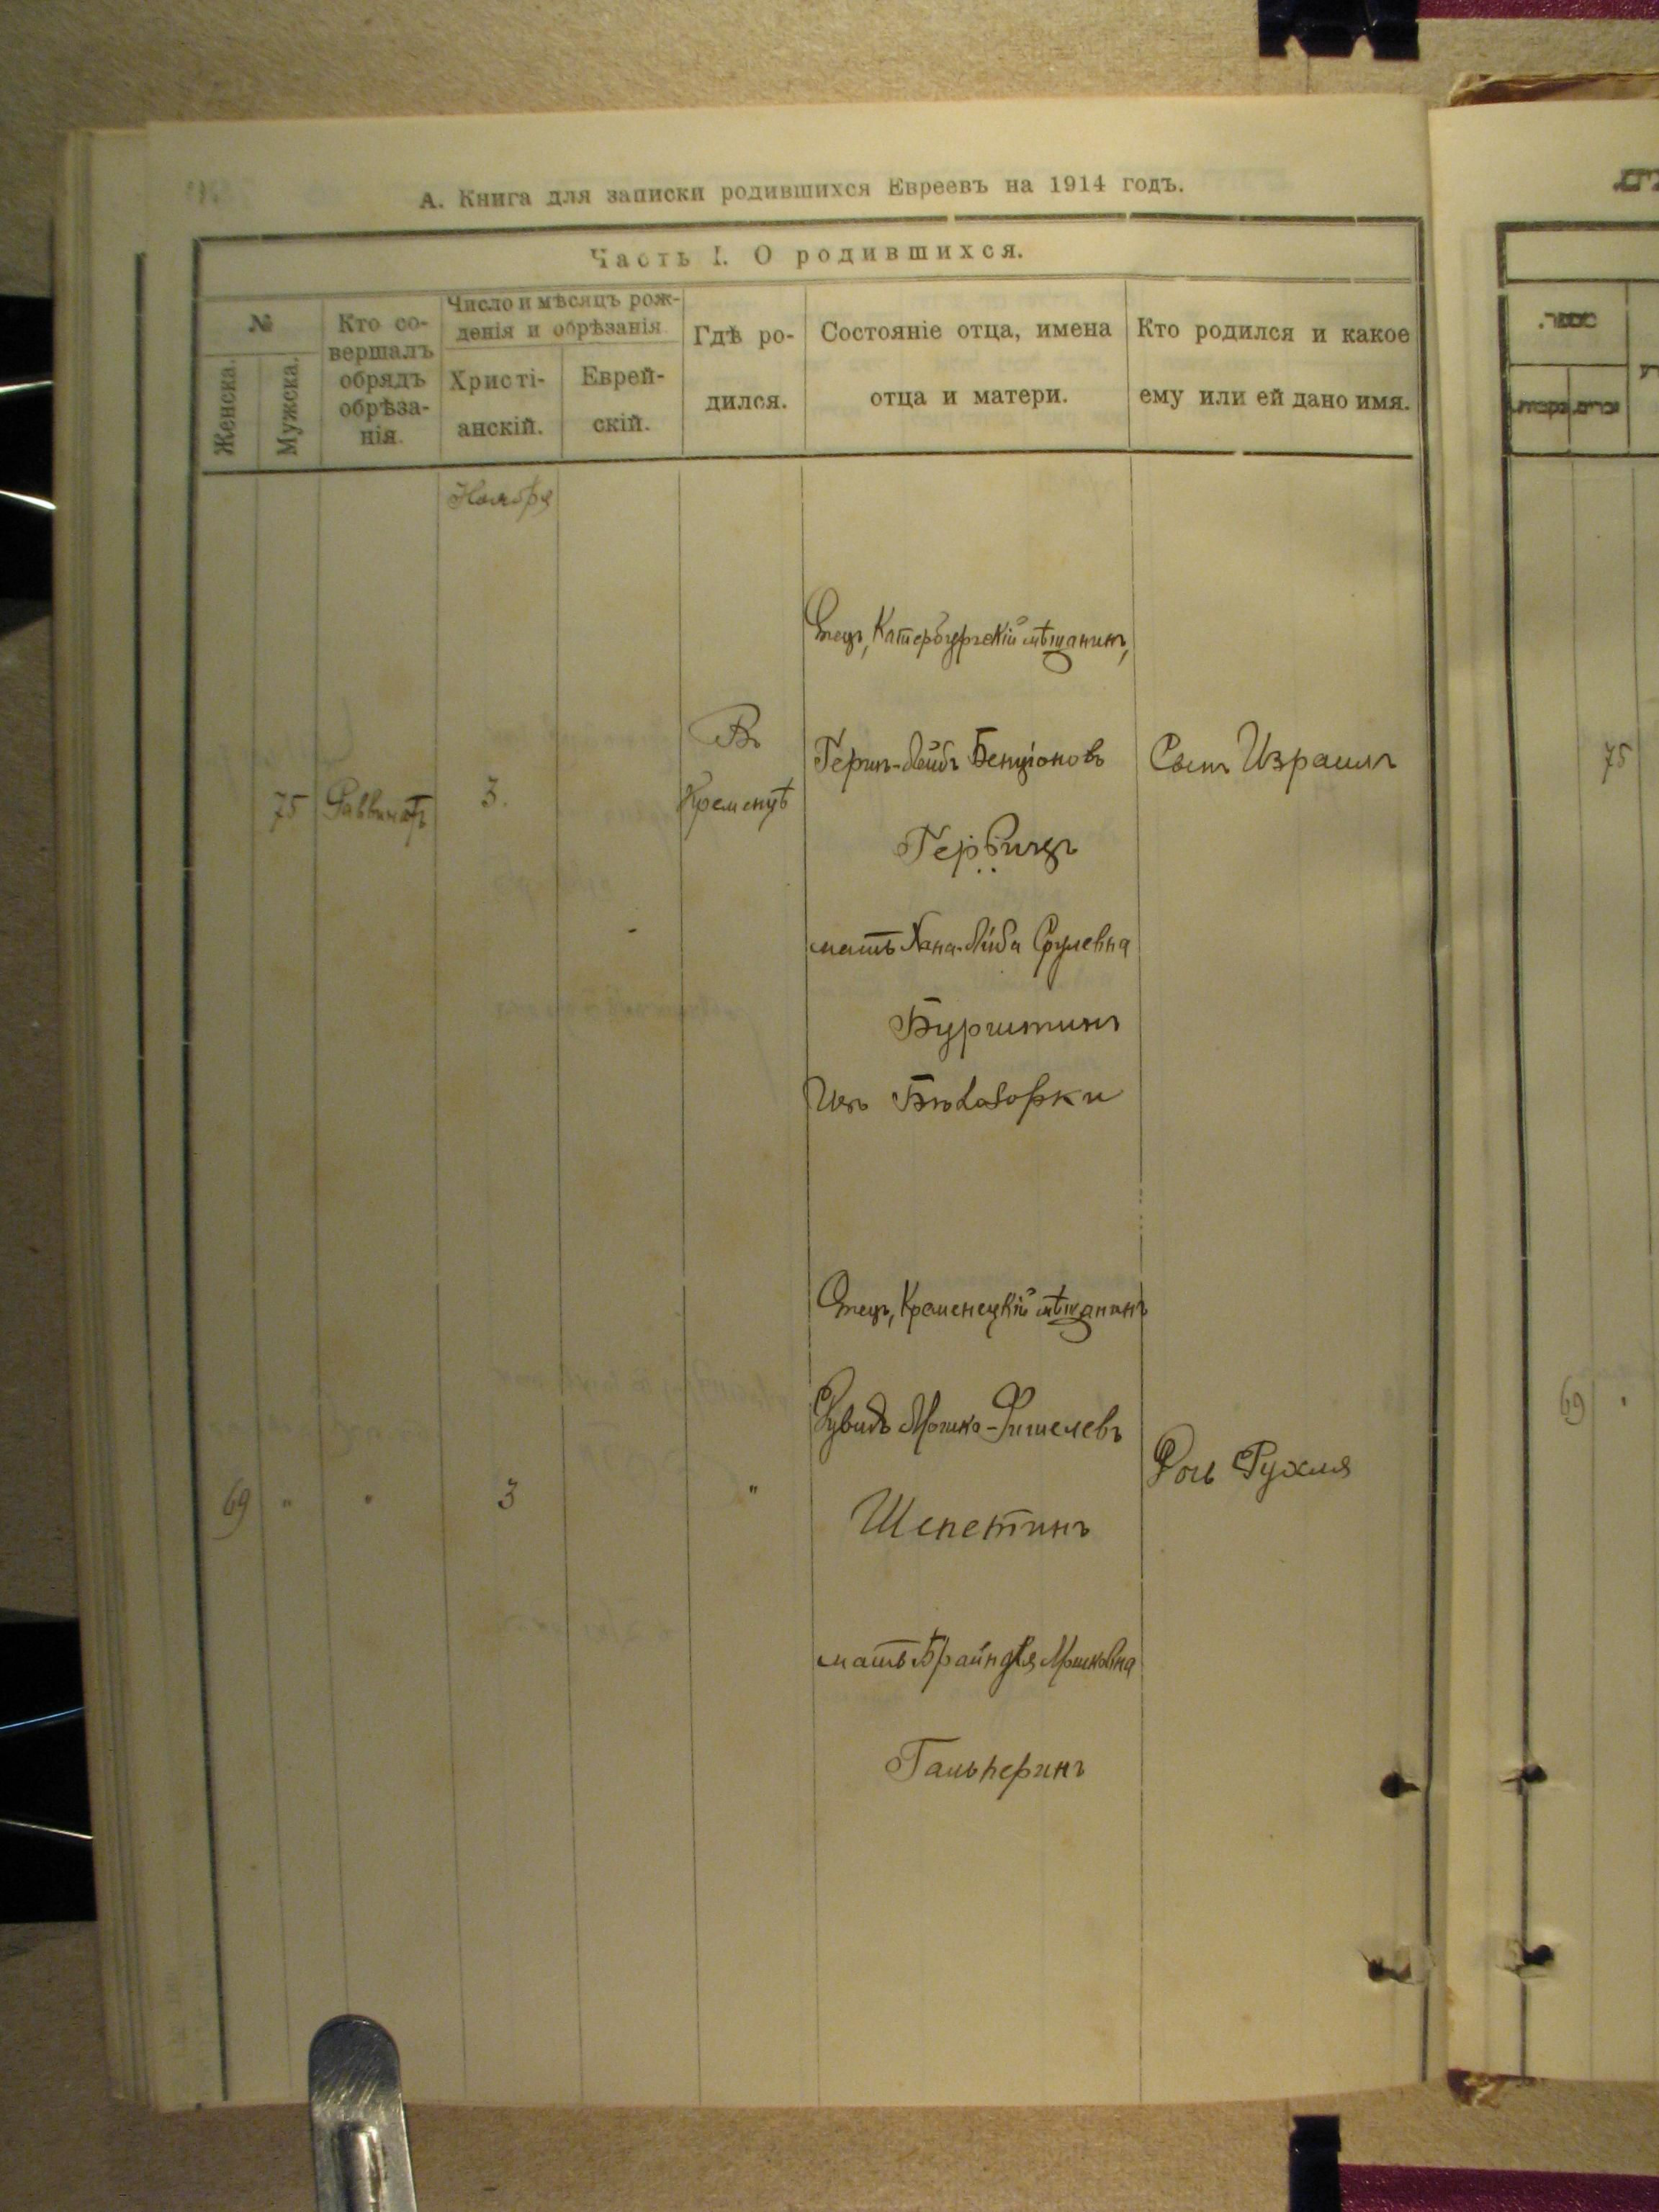 А. Книга для записки родившихся Евреевъ на 1914 годъ.
Часть I. О родившихся.
№
Женска.
Мужска.
Кто со-
вершалъ
обрядъ
обрѣза-
нія.
Число и мѣсяцъ рож-
денія и обрѣзанія.
Христі-
анскій.
Еврей-
скій.
Гдѣ ро-
дился.
Состояніе отца, имена
отца и матери.
Кто родился и какое
ему или ей дано имя.
Ноября
75
3.
Въ
Кременцѣ
Отецъ, Катербургскій мѣщанинъ,
Гершъ-Лейбъ Бенціоновъ
мать Хана- Срулевна
Бурштинъ
Изъ Бѣлозорки
Сынъ Израиль
69 " " 3 "
Отецъ, Кременецкій мѣщанинъ
Мошко-Фишелевъ
Шепетинъ
мать Брайндля Мошковна
Гальперинъ
Дочь Рухля
75
69